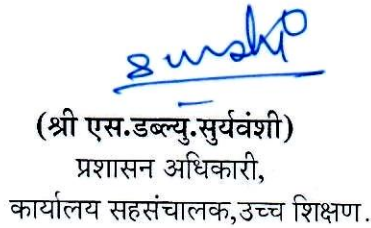 (श्री एस.डब्ल्यु.सुर्यवंशी)
प्रशासन अधिकारी,
कार्यालय सहसंचालक,उच्च शिक्षण.